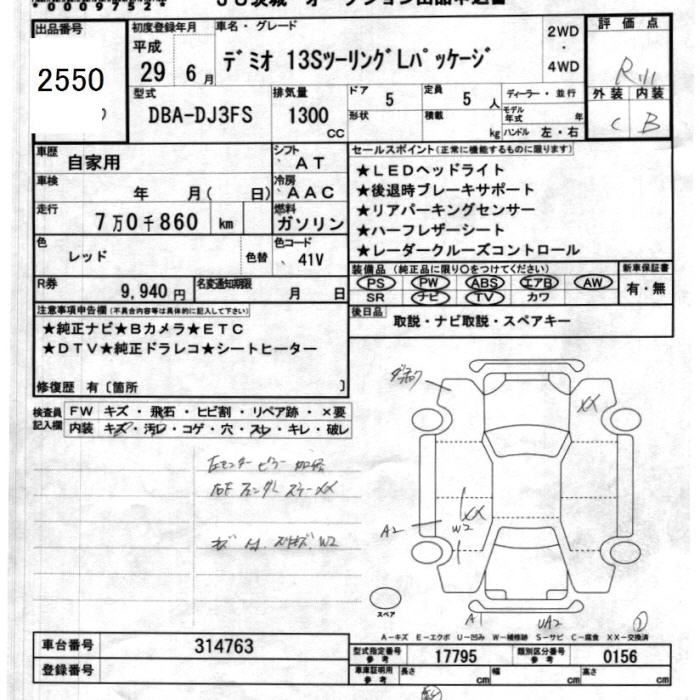 出品番号
2550
初度登録年月
平成
29 6月
車名・グレード
デミオ 13SツーリングLパッケージ
2WD
・
4WD
評価点
外装 内装
C B
型式
DBA-DJ3FS
排気量
1300
cc
ドア
5
定員
5 人
形状
積載
kg
ディーラー・並行
モデル年式 年
ハンドル 左・右
車歴
自家用
シフト
AT
車検
年 月( 日)
冷房
AAC
走行
7万0千860 km
燃料
ガソリン
色
レッド
色替
色コード
41V
R券
9,940円
名変通知期限
月 日
セールスポイント(正常に機能するものに限ります)
★LEDヘッドライト
★後退時ブレーキサポート
★リアパーキングセンサー
★ハーフレザーシート
★レーダークルーズコントロール
装備品(純正品に限り○をつけてください)
PS PW ABS エアB AW
SR ナビ TV カワ
新車保証書
有・無
後日品
取説・ナビ取説・スペアキー
注意事項申告欄(不具合内容等は具体的に記入して下さい)
★純正ナビ★Bカメラ★ETC
★DTV★純正ドラレコ★シートヒーター
修復歴 有〔箇所 〕
検査員記入欄
FW キズ・飛石・ヒビ割・リペア跡・×要
内装 キズ・汚レ・コゲ・穴・スレ・キレ・破レ
XX
XX
W2
A2
A1
UA2
スペア
A−キズ E−エクボ U−凹み W−補修跡 S−サビ C−腐食 XX−交換済
車台番号
314763
登録番号
型式指定番号
参考
17795
類別区分番号
参考
0156
車庫証明用
参考
長さ cm
幅 cm
高さ cm